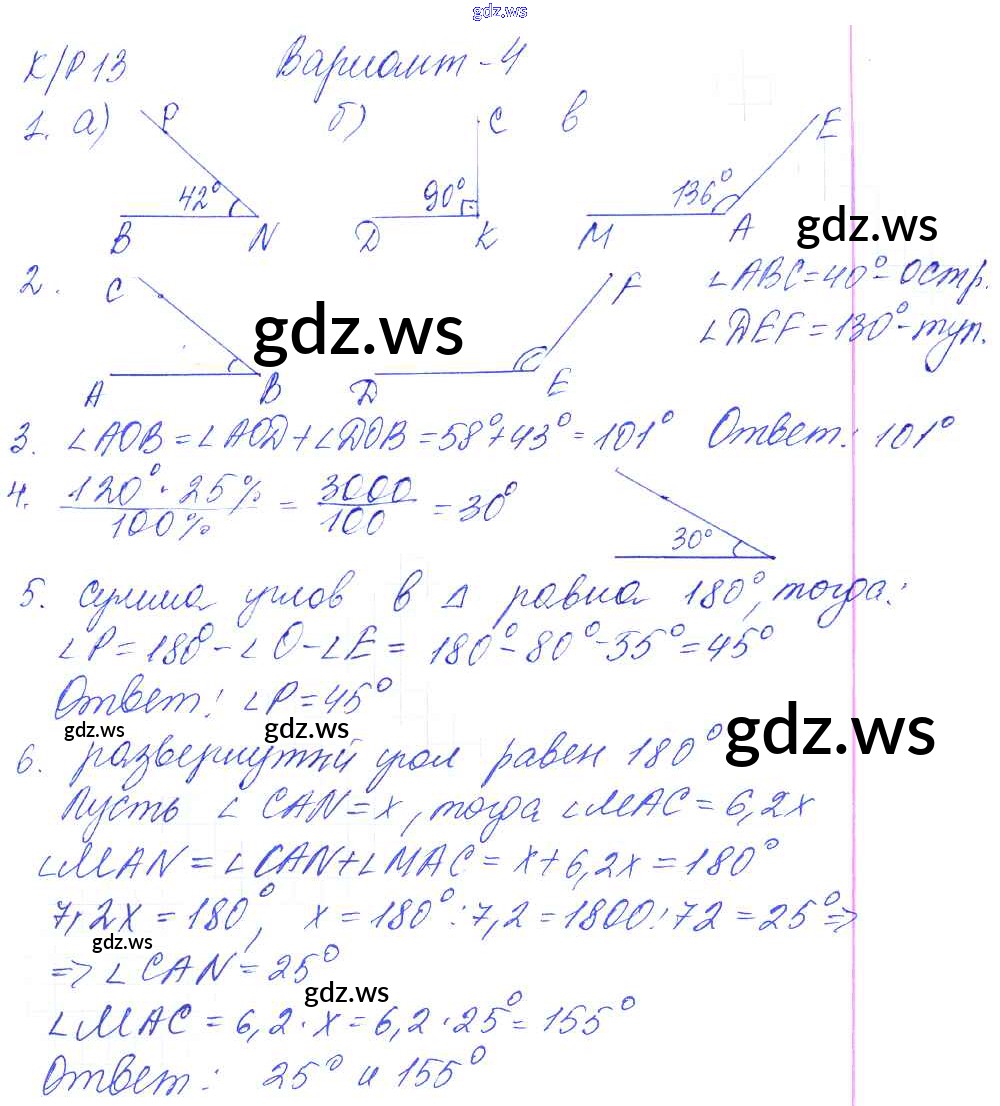 gdz.ws
К/Р 13 Вариант - 4
1. а) P 42° B N
б) C 90° D K
в E 136° M A
gdz.ws
2. C A B
F D E
∠ABC = 40° - остр.
∠DEF = 130° - туп.
gdz.ws
3. ∠AOB = ∠AOD + ∠DOB = 58° + 43° = 101° Ответ: 101°
4. 120° · 25% / 100% = 3000 / 100 = 30° 30°
5. сумма углов в Δ равна 180°, тогда:
∠P = 180° - ∠O - ∠E = 180° - 80° - 55° = 45°
Ответ: ∠P = 45°
gdz.ws gdz.ws gdz.ws
6. развернутый угол равен 180°
Пусть ∠CAN = x, тогда ∠MAC = 6,2x
∠MAN = ∠CAN + ∠MAC = x + 6,2x = 180°
7,2x = 180°, x = 180° : 7,2 = 1800 : 72 = 25° =>
gdz.ws
=> ∠CAN = 25°
gdz.ws
∠MAC = 6,2 · x = 6,2 · 25° = 155°
Ответ: 25° и 155°